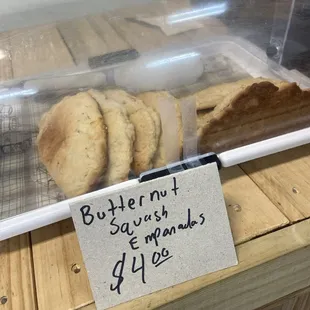 Butternut
Squash
Empanadas
$4.00